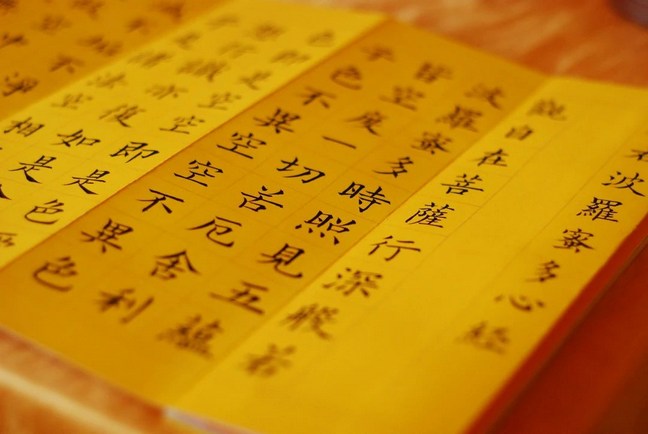 若波羅蜜多心經
觀自在菩薩行深般若
波羅蜜多時照見五蘊
皆空度一切苦厄舍利
子色不異空空不異色
色即是空空即是色
想行識亦復如是
是諸法空相
垢不淨